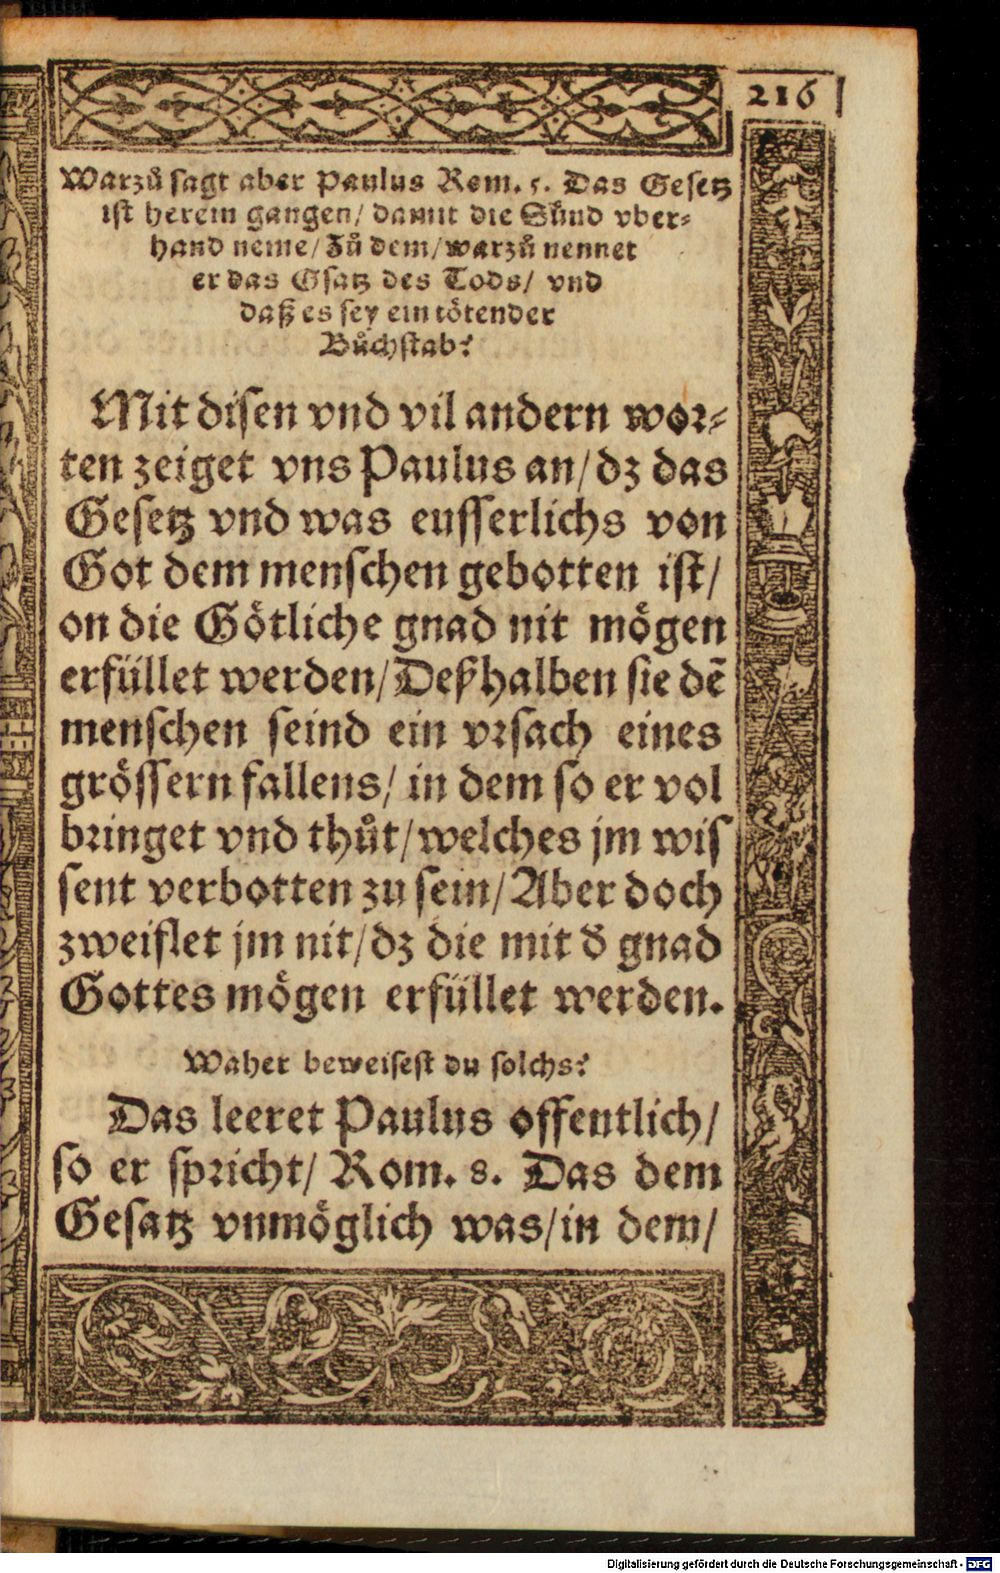 216
Warzů sagt aber Paulus Rom. 5. Das Gesetz
ist herein gangen/ damit die Sünd vber-
hand neme/ Zů dem/ warzů nennet
er das Gsatz des Tods/ vnd
daß es sey ein tötender
Bůchstab?
Mit disen vnd vil andern wor-
ten zeiget vns Paulus an/ dz das
Gesetz vnd was eusserlichs von
Got dem menschen gebotten ist/
on die Götliche gnad nit mögen
erfüllet werden/ Deßhalben sie dē
menschen seind ein vrsach eines
grössern fallens/ in dem so er vol
bringet vnd thůt/ welches jm wis
sent verbotten zu sein/ Aber doch
zweiflet jm nit/ dz die mit d̕ gnad
Gottes mögen erfüllet werden.
Waher beweisest du solchs?
Das leeret Paulus offentlich/
so er spricht/ Rom. 8. Das dem
Gesatz vnmöglich was/ in dem/
Digitalisierung gefördert durch die Deutsche Forschungsgemeinschaft - DFG